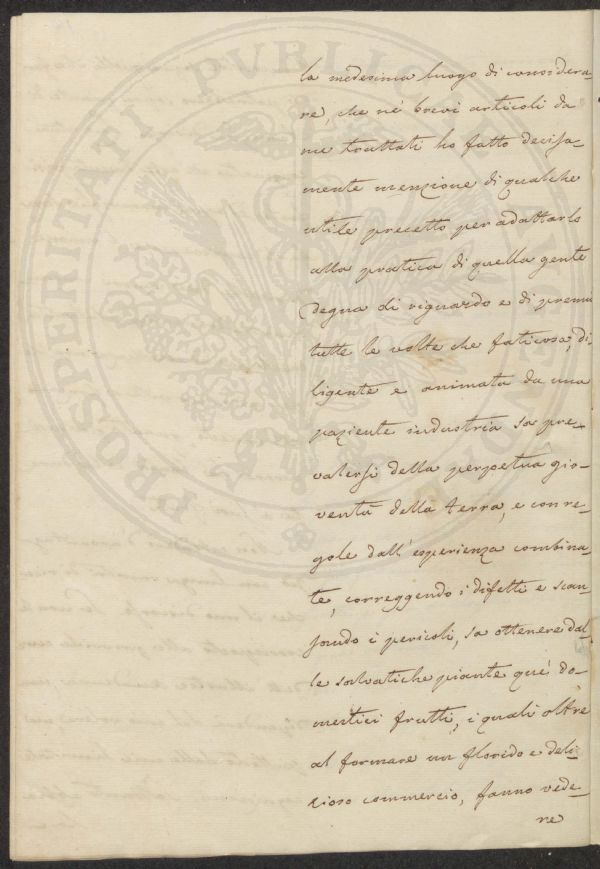 PROSPERITATI PUBLICAE AUGENDAE
la medesima luogo di considera-
re, che ne' brevi articoli da
me trattati ho fatto decisa-
mente menzione di qualche
utile precetto per adattarlo
alla pratica di quella gente
degna di riguardo e di premi
tutte le volte che faticosa, di-
ligente e animata da una
paziente industria sa pre-
valersi della perpetua gio-
ventù della terra, e con re-
gole dall'esperienza combina-
te, correggendo i difetti e scan-
sando i pericoli, sa ottenere dal-
le salvatiche piante que' do-
mestici frutti, i quali oltre
al formare un florido e deli-
zioso commercio, fanno vede-
re